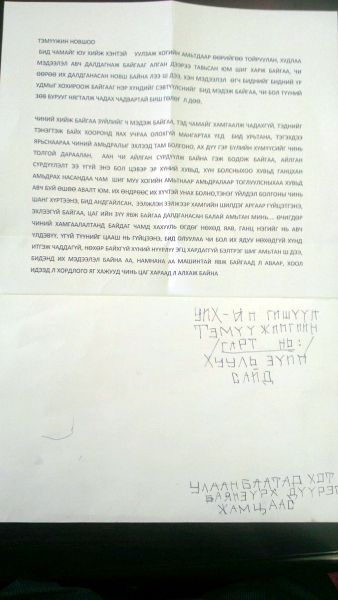 ТЭМҮҮЖИН НОВШОО
БИД ЧАМАЙГ ЮУ ХИЙЖ ХЭНТЭЙ УУЛЗАЖ ХОГИЙН АМЬТДААР ӨӨРИЙГӨӨ ТОЙРУУЛАН, ХУДЛАА
МЭДЭЭЛЭЛ АВЧ ДАЛДАГНАЖ БАЙГААГ АЛГАН ДЭЭРЭЭ ТАВЬСАН ЮМ ШИГ ХАРЖ БАЙГАА, ЧИ
ӨӨРӨӨ ИХ ДАЛДГАНАСАН НОВШ БАЙНА ЛЭЭ Ш ДЭЭ, ХЭН МЭДЭЭЛЭЛ ӨГЧ БИДНИЙГ БИДНИЙ ҮР
УДМЫГ ХОХИРООЖ БАЙГААГ НЭР ХҮНДИЙГ СЭВТҮҮЛСНИЙГ БИД МЭДЭЖ БАЙГАА, ЧИ БОЛ ТҮҮНИЙ
ЗӨВ БУРУУГ НЯГТАЛЖ ЧАДАХ ЧАДВАРТАЙ БИШ Л ДӨӨ.
ЧИНИЙ ХИЙЖ БАЙГАА ЗҮЙЛИЙГ Ч МЭДЭЖ БАЙГАА, ТЭД ЧАМАЙГ ХАМГААЛЖ ЧАДАХГҮЙ, ТЭДНИЙГ
ТЭНЭГТЭЖ БАЙХ ХООРОНД ЯАХ УЧРАА ОЛОХГҮЙ МАНГАРТАХ ҮЕД БИД УРЬТАНА, ТЭГЭХДЭЭ
ЯРЬСНААРАА ЧИНИЙ АМЬДРАЛЫГ ЭХЛЭЭД ТАМ БОЛГОНО, АХ ДҮҮ ГЭР БҮЛИЙН ХҮМҮҮСИЙГ ЧИНЬ
ТОЛГОЙ ДАРААЛАН, ААН ЧИ АЙЛГАН СҮРДҮҮЛЖ БАЙНА ГЭЖ БОДОЖ БАЙГАА, АЙЛГАН
СҮРДҮҮЛЭЛТ ЭЭ ҮГҮЙ ЭНЭ БОЛ ЦЭВЭР ЭР ХҮНИЙ ХУВЬД, ХҮН БОЛСНЫХОО ХУВЬД ГАНЦХАН
АМЬДРАХ НАСАНДАА ЧАМ ШИГ МУУ ХОГИЙН АМЬТНААР АМЬДРАЛААР ТОГЛУУЛСНЫХАА ХУВЬД
АВЧ БУЙ ӨШӨӨ АВАЛТ ЮМ. ИХ ӨНДРӨӨС ИХ ХҮҮТЭЙ УНАХ БОЛНО,ТЭНЭГ ҮЙЛДЭЛ БОЛГОНЫ ЧИНЬ
ШАНГ ХҮРТЭЭНЭ, БИД АНДГАЙЛСАН, ЭЭЛЖЛЭН ЭЗЭМЛЭЖ ХАМГИЙН ШИЛДЭГ АРГААР ГҮЙЦЭТГЭНЭ,
ЭХЛЭЭГҮЙ БАЙГАА, ЦАГ ИЙН ЗҮҮ ЯВЖ БАЙГАА ДАЛДГАНАСАН БАЛАЙ АМЬТАН МИНЬ... ӨЧИГДӨР
ЧИНИЙ ХАМГААЛАЛТАНД БАЙДАГ ЧАМД ХАХУУЛЬ ӨГДӨГ НӨХӨД ЯАВ, ГАНЦ НЭГИЙГ НЬ АВЧ
ҮЛДЭВҮҮ, ҮГҮЙ ТҮҮНИЙГ ЦААШ НЬ ГҮЙЦЭЭНЭ, БИД ОЛУУЛАА ЧИ БОЛ ИХ ЯДУУ НӨХӨДГҮЙ ХҮНД
ИТГЭЖ ЧАДДАГГҮЙ, НӨХӨР БАЙХГҮЙ ХҮНИЙ НҮҮРҮҮ ЭГЦ ХАРДАГГҮЙ БЭЛТРЭГ ШИГ АМЬТАН Ш ДЭЭ,
БИДЭНД ИХ МЭДЭЭЛЭЛ БАЙНА АА, НАМНАНА АА МАШИНТАЙ ЯВЖ БАЙГААД Л АВААР, ХООЛ
ИДЭЭД Л ХОРДЛОГО ЯГ ХАЖУУД ЧИНЬ ЦАГ ХАРААД Л АЛХАЖ БАЙНА
УИХ-ЫН ГИШҮҮН
ТЭМҮҮЖИНГИЙН
ГАРТ НЬ:
ХУУЛЬ ЗҮЙН
САЙД
УЛААНБААТАР ХОТ
БАЯНЗҮРХ ДҮҮРЭГ
ЖАМЦААС